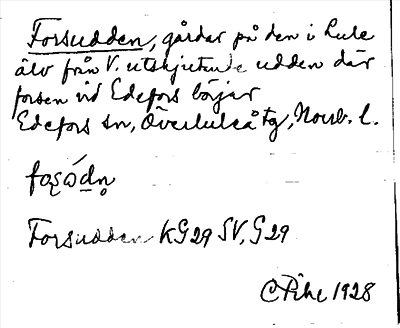 Forsudden, gårdar på den i Lule
älv från V. utskjutande udden där
forsen vid Edefors börjar
Edefors sn, Överluleå tg, Norrb. l.
Forsudden KG29 SV, G29
C Pihl 1928